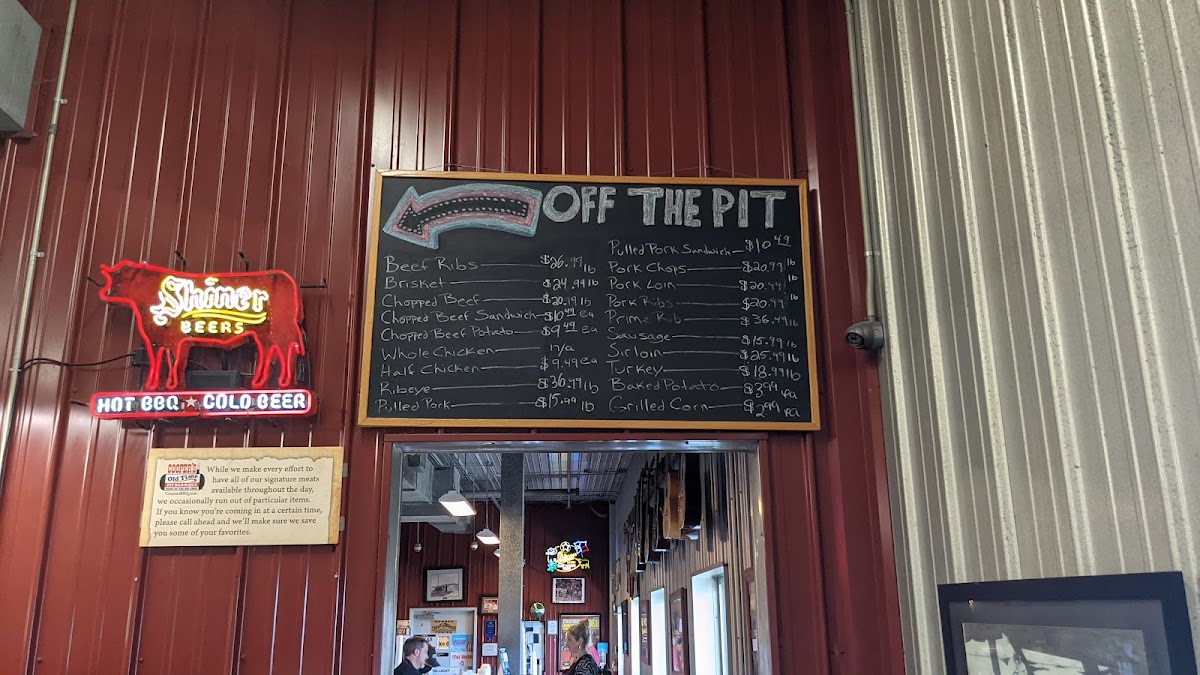 OFF THE PIT
Beef Ribs $26.99 lb
Brisket $24.99 lb
Chopped Beef $20.99 lb
Chopped Beef Sandwich $10.49 ea
Chopped Beef Potato $9.49 ea
Whole Chicken n/a
Half Chicken $9.49 ea
Ribeye $36.99 lb
Pulled Pork $15.99 lb
Pulled Pork Sandwich $10.49
Pork Chops $20.99 lb
Pork Loin $20.99 lb
Pork Ribs $20.99 lb
Prime Rib $36.49 lb
Sausage $15.99 lb
Sirloin $25.99 lb
Turkey $18.99 lb
Baked Potato $3.99 ea
Grilled Corn $2.99 ea
Shiner
BEERS
HOT BBQ ★ COLD BEER
COOPER'S
Old Time
While we make every effort to
have all of our signature meats
available throughout the day,
we occasionally run out of particular items.
If you know you're coming in at a certain time,
please call ahead and we'll make sure we save
you some of your favorites.